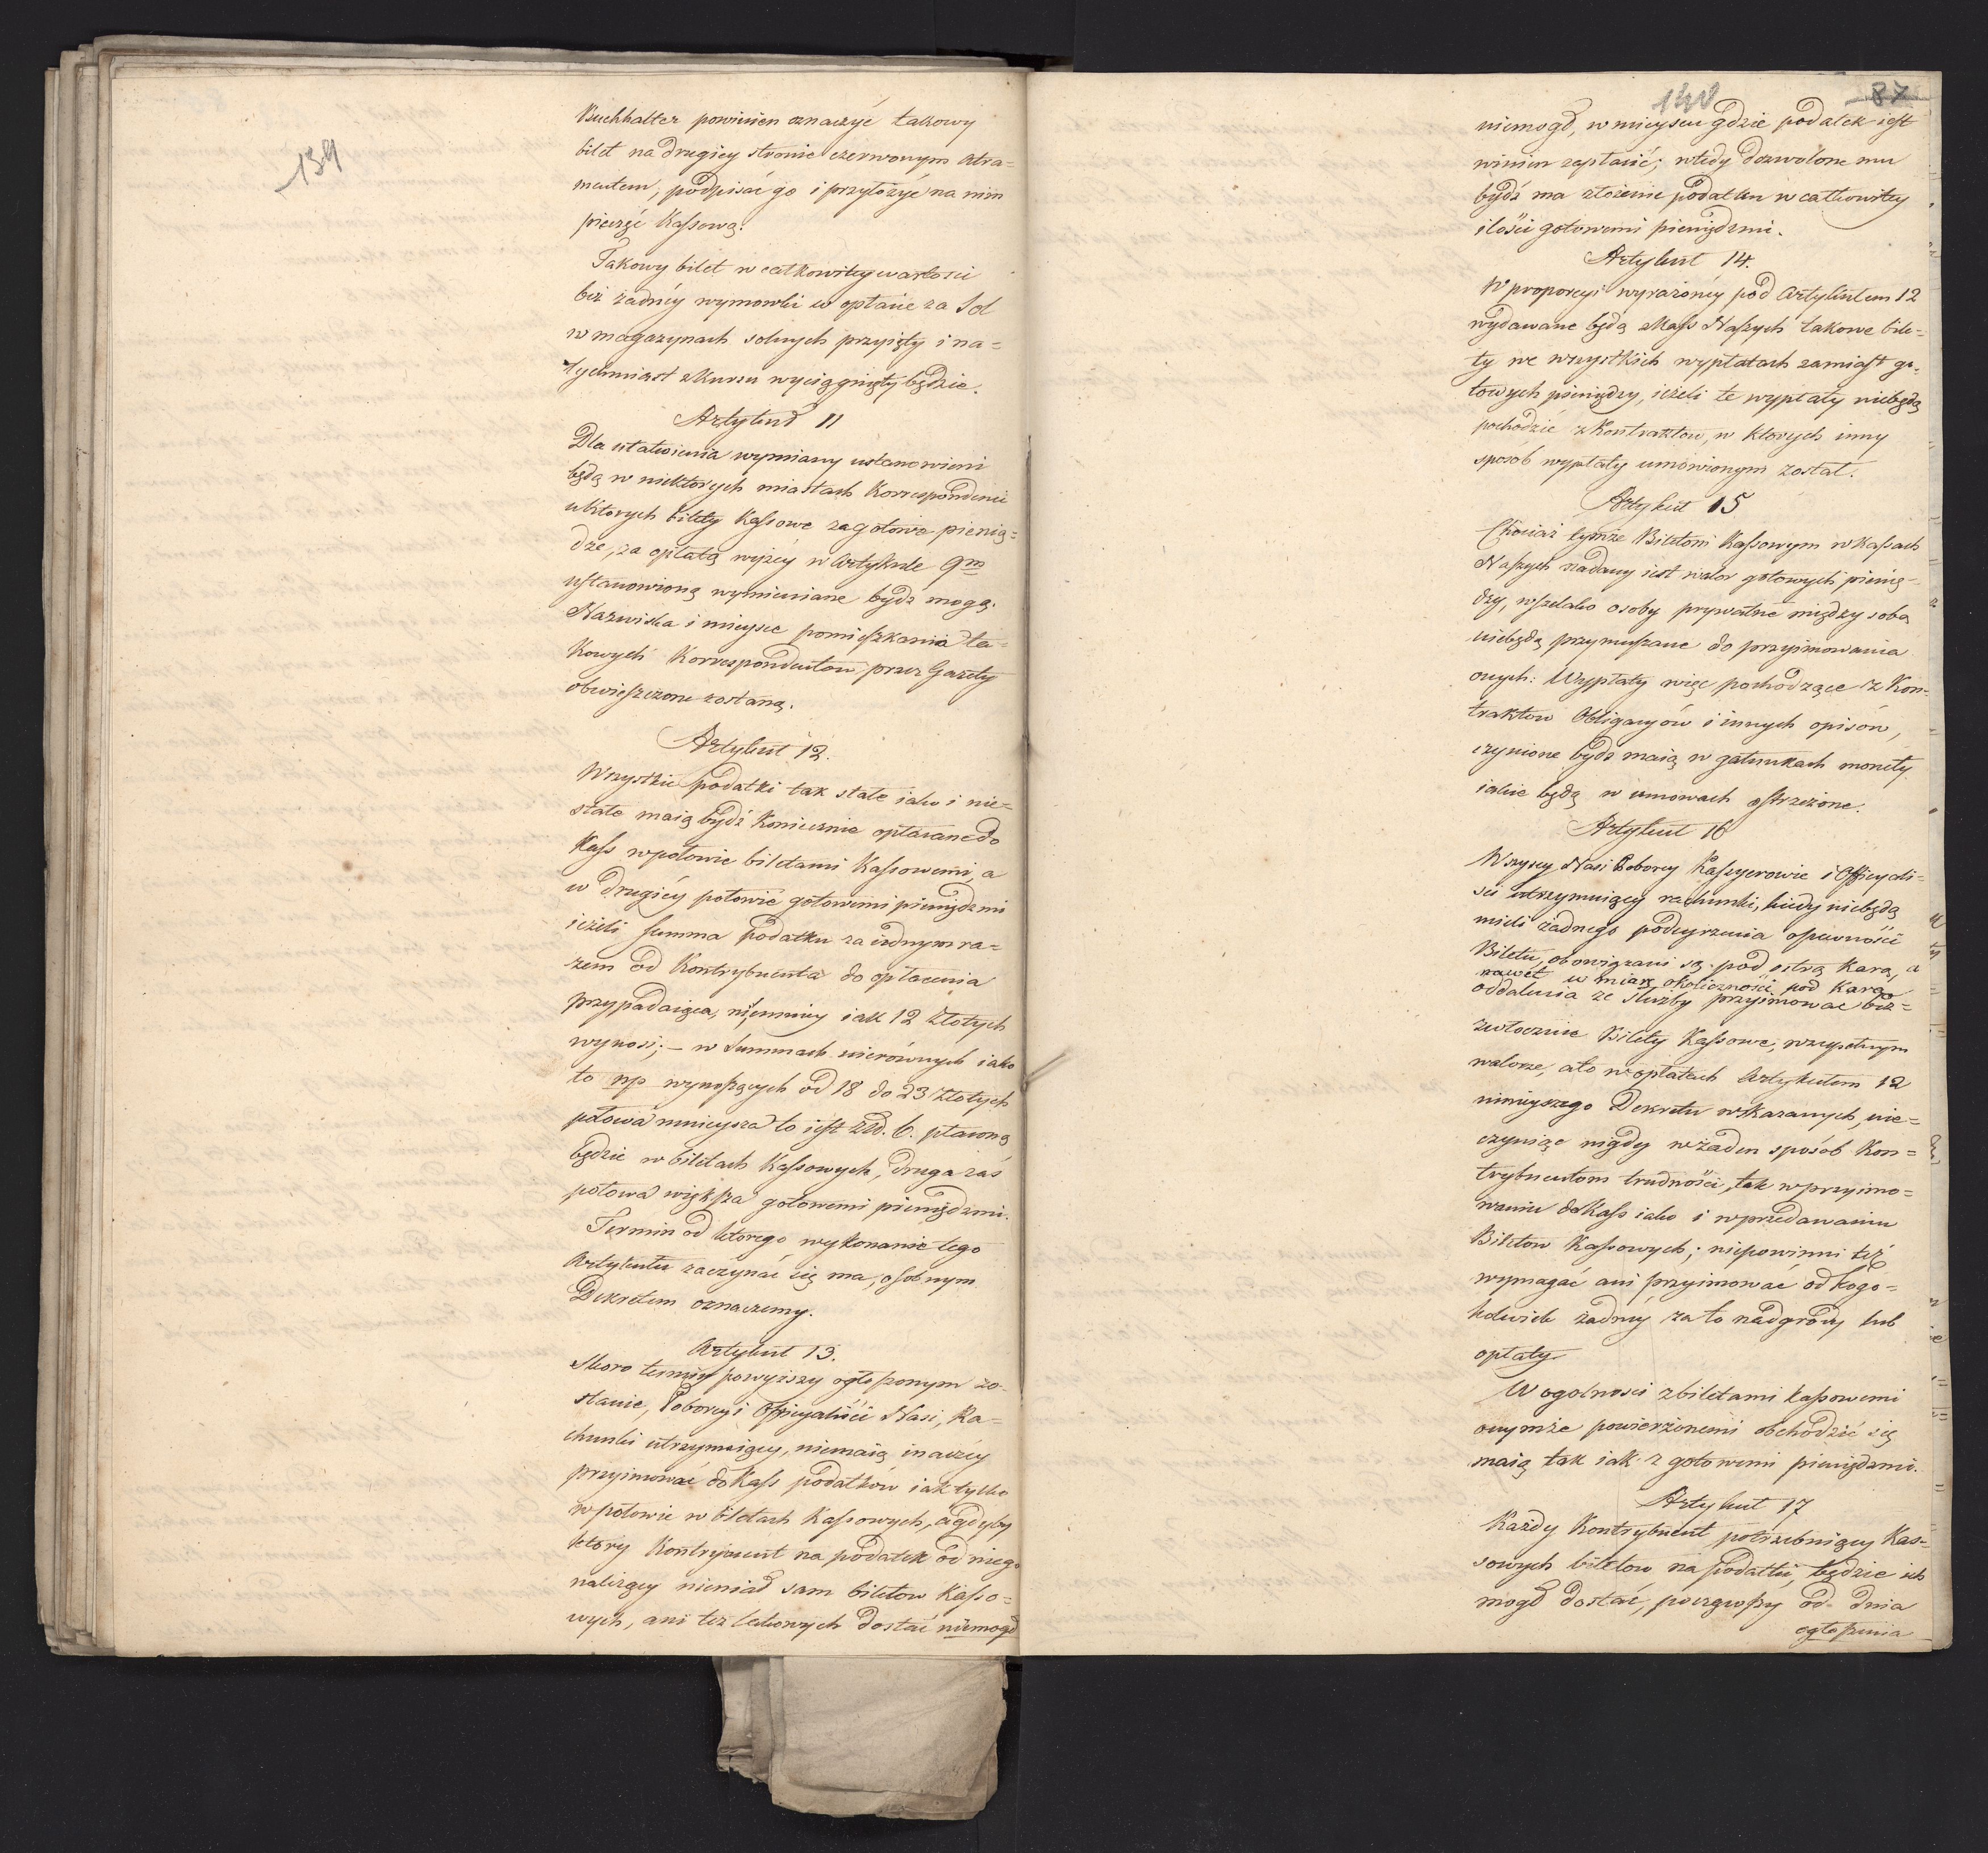 139
Buchhalter powinien oznaczyć takowy
bilet na drugiey stronie czerwonym atra=
mentem, podpisać go i przyłożyć na nim
pieczęć Kassową.
Takowy bilet w całkowitey wartosci
bez żadney wymowki w opłacie za Sol
w magazynach solnych przyięty i na=
tychmiast z Kursu wyciągnięty będzie.
Artykuł 11
Dla ułatwienia wymiany ustanowieni
będą w niektorych miastach Korrespondenci
u ktorych bilety Kassowe za gotowe pienią=
dze, za opłatą wyżey w Artykule 9m
ustanowioną wymieniane bydz mogą.
Nazwiska i mieysce pomieszkania ta=
kowych Korrespondentow przez Gazety
obwieszczone zostaną.
Artykuł 12.
Wszystkie podatki tak stałe iako i nie=
stałe maią bydź koniecznie opłacane do
Kass w połowie biletami Kassowemi, a
w drugiéy połowie gotowemi pieniędzmi
ieżeli summa podatku za iednym ra=
zem od Kontrybuenta do opłacenia
przypadaiąca, niemniey iak 12 złotych
wynosi; – w Summach nierównych iako
to np wynoszących od 18 do 23 złotych
połowa mnieysza to iest Złł. 6. płaconą
będzie w biletach Kassowych, druga zaś
połowa większa gotowemi pieniędzmi.
Termin od ktorego wykonanie tego
Artykułu zaczynać się ma, osobnym
Dekretem oznaczemy.
Artykuł 13.
Skoro termin powyższy ogłoszonym zo=
stanie, Poborcy i Officyaliści Nasi, Ra=
chunki utrzymuiący, niemaią inaczéy
przyimować do Kass podatków iak tylko
w połowie w biletach Kassowych, a gdyby
ktory Kontrybuent na podatek od niego
należący niemiał sam biletow Kasso=
wych, ani też takowych dostać niemogł
140
87
niemogł, w mieyscu gdzie podatek iest
winien zapłacić; wtedy dozwolone mu
bydź ma złożenie podatku w całkowitey
ilości gotowemi pieniędzmi.
Artykuł 14.
W proporcyi wyrażonéy pod Artykułem 12
wydawane będą z Kass Naszych takowe bile=
ty we wszystkich wypłatach zamiast go=
towych pieniędzy, ieżeli te wypłaty niebędą
pochodzić z Kontraktow, w ktorych inny
sposob wypłaty umówionym został.
Artykuł 15
Chociaż tymże Biletom Kassowym w Kassach
Naszych nadany iest walor gotowych pienię=
dzy, wszelako osoby prywatne między sobą
niebędą przymuszane do przyimowania
onych: Wypłaty więc pochodzące z Kon=
traktow Obligacyów i innych opisów,
czynione bydz maią w gatunkach monety
iakie będą w umowach ostrzeżone.
Artykuł 16
Wszyscy Nasi Poborcy Kassyerowie i Officyali=
ści utrzymuiący rachunki, kiedy niebędą
mieli żadnego podeyrzenia o pewności
Biletu, obowiązani są pod ostrą karą, a
nawet w miarę okoliczności pod karą
oddalenia ze służby przyimować bez=
zwłocznie Bilety Kassowe, w zupełnym
walorze, a to w opłatach Artykułem 12
ninieyszego Dekretu wskazanych, nie=
czyniąc nigdy w żaden sposób Kon=
trybuentom trudności, tak w przyimo=
waniu do Kass iako i w przedawaniu
Biletow Kassowych; niepowinni też
wymagać ani przyimować od kogo=
kolwiek żadnéy za to nadgrody lub
opłaty.
W ogolności z biletami kassowemi
onymże powierzonemi obchodzić się
maią tak iak z gotowemi pieniędzmi.
Artykuł 17
Każdy Kontrybuent potrzebuiący Kas=
sowych biletow na podatki, będzie ich
mogł dostać, począwszy od dnia
ogłoszenia